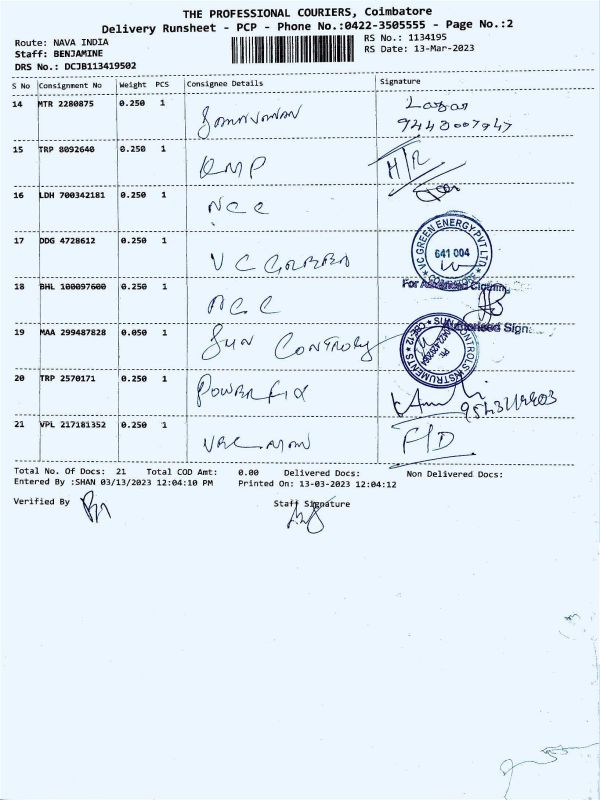 THE PROFESSIONAL COURIERS, Coimbatore
Delivery Runsheet - PCP - Phone No.:0422-3505555 - Page No.:2
Route: NAVA INDIA
Staff: BENJAMINE
DRS No.: DCJB113419502
RS No.: 1134195
RS Date: 13-Mar-2023
S No Consignment No Weight PCS Consignee Details Signature
14 MTR 2280875 0.250 1
15 TRP 8092640 0.250 1 H/R
16 LDH 700342181 0.250 1 NCC
17 DDG 4728612 0.250 1 VC GREEN
VC GREEN ENERGY PVT LTD
641 004
COIMBATORE
18 BHL 100097600 0.250 1
Authorised Sign.
19 MAA 299487828 0.050 1 SUN CONTROLS
SUN CONTROLS INSTRUMENTS
CBE-12
20 TRP 2570171 0.250 1 POWERFIX
21 VPL 217181352 0.250 1
Total No. Of Docs: 21 Total COD Amt: 0.00 Delivered Docs: Non Delivered Docs:
Entered By :SHAN 03/13/2023 12:04:10 PM Printed On: 13-03-2023 12:04:12
Verified By
Staff Signature